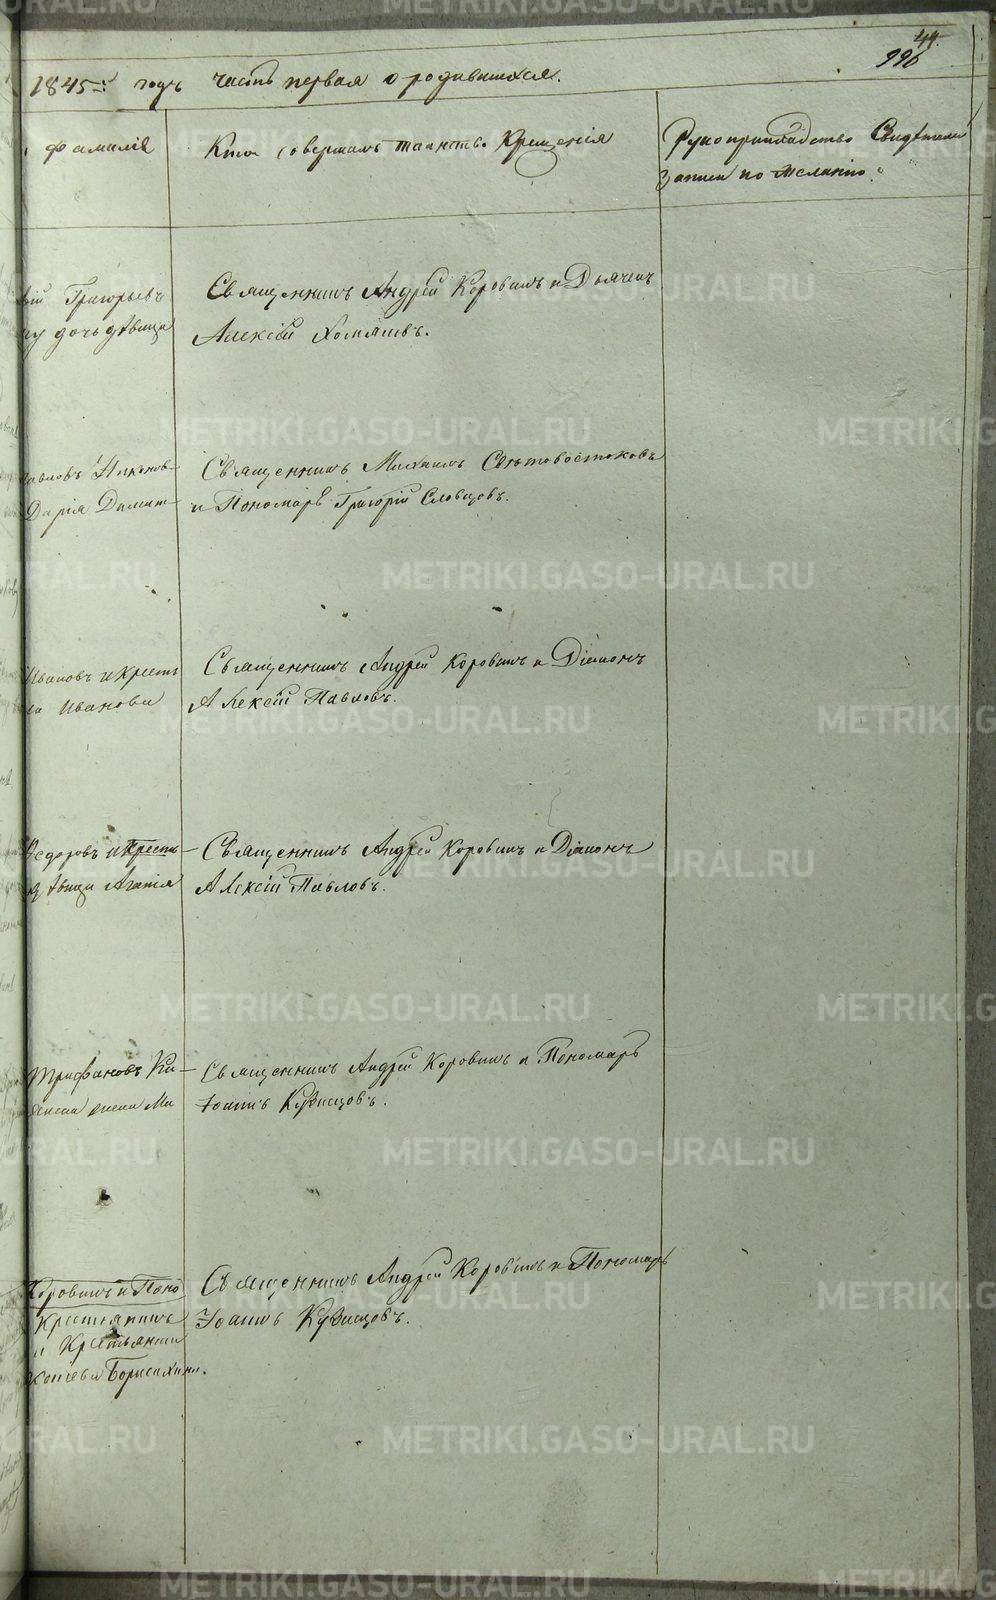 44.
996
1845 годъ часть первая о родившихся.
фамилiя
Кто совершалъ таинство Крещенiя
Рукоприкладство Свидѣтелей
записи по желанiю.
Григорьевъ
дочь дѣвица
Священникъ Андрей Коровинъ и Дьячекъ
Алексiй Хомяковъ.
Никонов-
Дарiя Димит-
Священникъ Михаилъ Свѣтовостоковъ
и Пономарь Григорiй Словцовъ.
Ивановъ и крестъ
Иванова
Священникъ Андрей Коровинъ и Дiаконъ
Алексiй Павловъ.
Ѳедоровъ и Кресть-
дѣвица Агапiя
Священникъ Андрей Коровинъ и Дiаконъ
Алексiй Павловъ.
Трифановъ Ки-
жена Ми
Священникъ Андрей Коровинъ и Пономарь
Iоаннъ Кузнецовъ.
Коровинъ и Поно
Крестьянинъ
и Крестьянки
Борисихина.
Священникъ Андрей Коровинъ и Пономарь
Iоаннъ Кузнецовъ.
METRIKI.GASO-URAL.RU